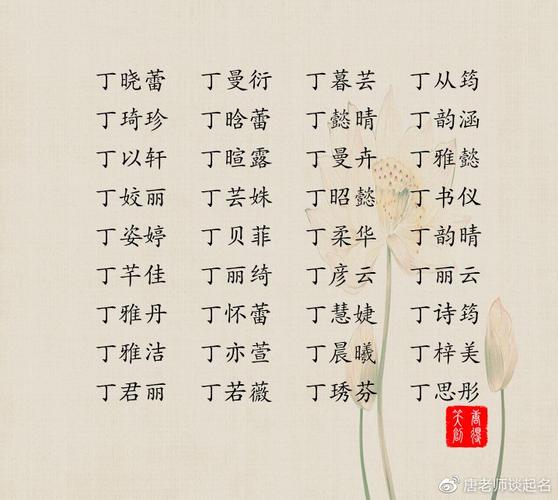 丁晓蕾 丁曼衍 丁暮芸 丁从筠
丁琦珍 丁晗蕾 丁懿晴 丁韵涵
丁以轩 丁暄露 丁曼卉 丁雅懿
丁姣丽 丁芸姝 丁昭懿 丁书仪
丁姿婷 丁贝菲 丁柔华 丁韵晴
丁芊佳 丁丽绮 丁彦云 丁丽云
丁雅丹 丁怀蕾 丁慧婕 丁诗筠
丁雅洁 丁亦萱 丁晨曦 丁梓美
丁君丽 丁若薇 丁琇芬 丁思彤
唐老师谈起名